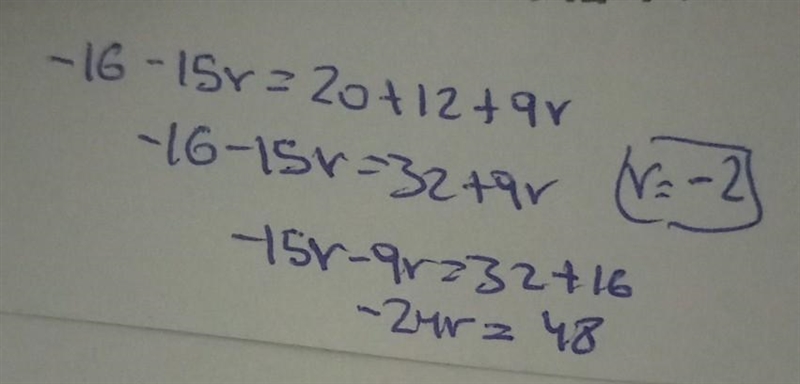 -16 -15r = 20+12+9r
-16-15r=32+9r
r=-2
-15r-9r=32+16
-24r = 48